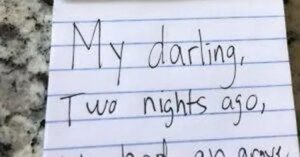 My darling,
Two nights ago,
had an